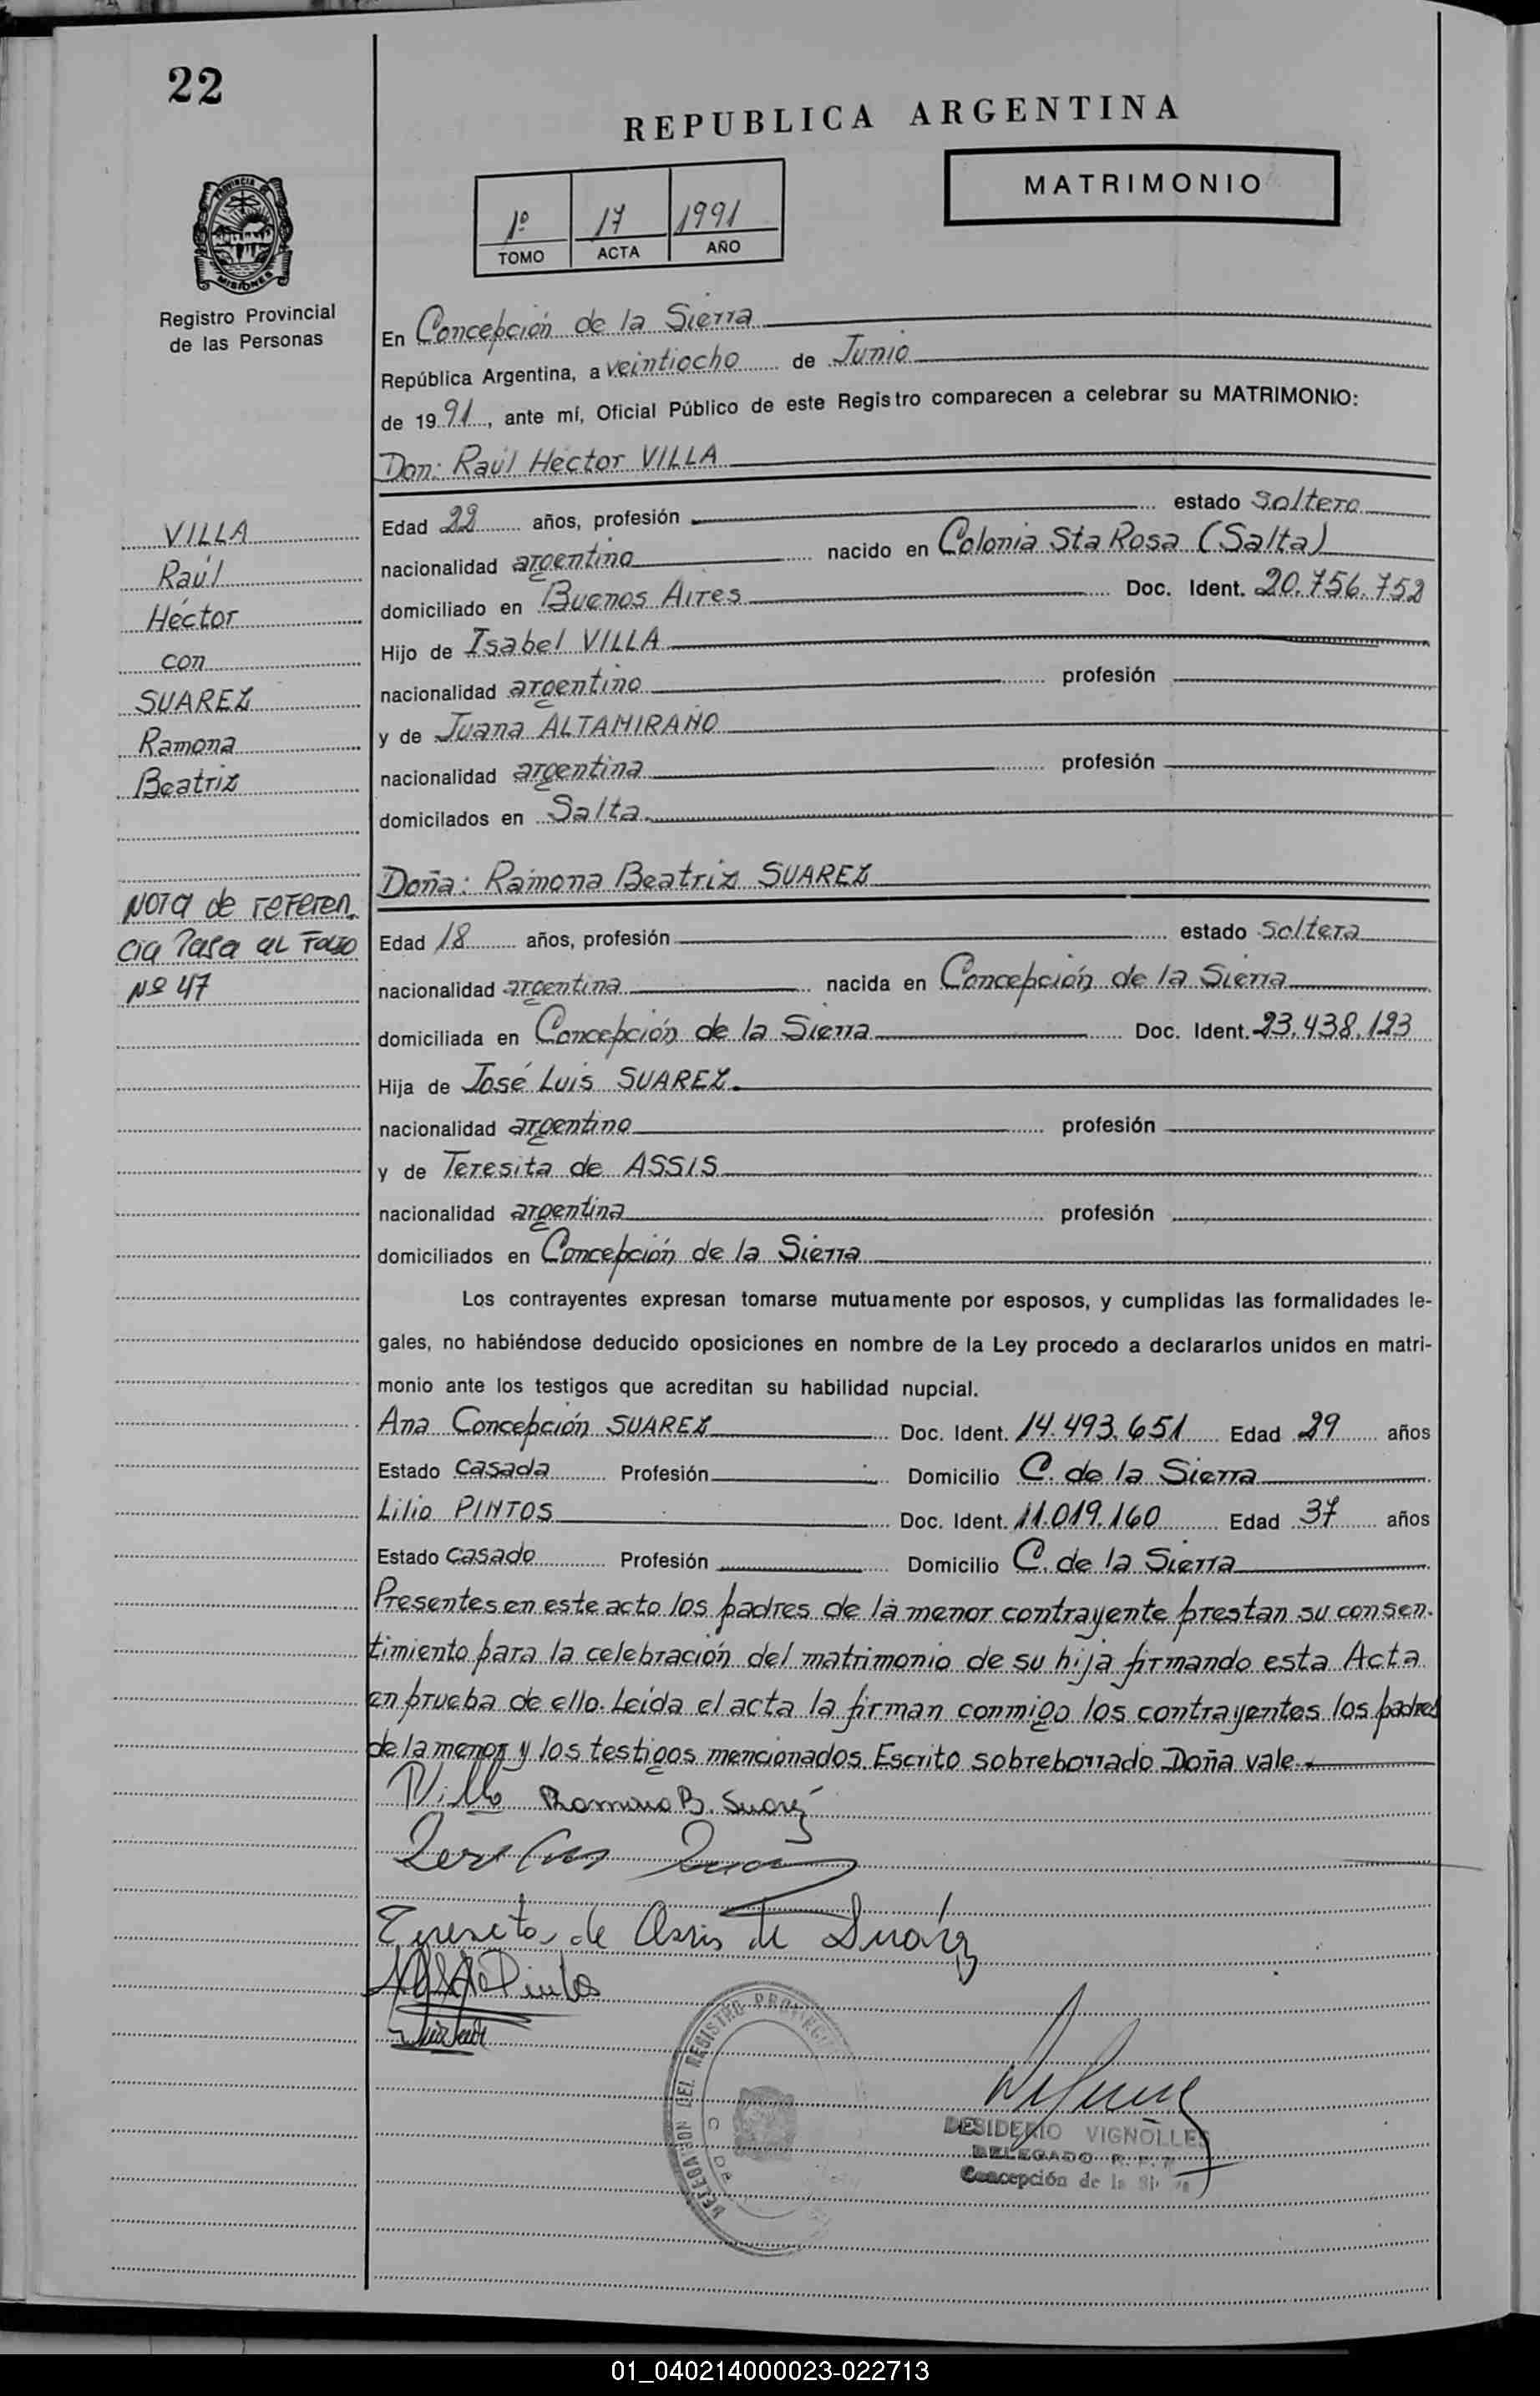 22
REPUBLICA ARGENTINA
MATRIMONIO
1º 17 1991
TOMO ACTA AÑO
PROVINCIA DE
MISIONES
Registro Provincial
de las Personas
En Concepción de la Sierra
República Argentina, a veintiocho de Junio
de 1991, ante mí, Oficial Público de este Registro comparecen a celebrar su MATRIMONIO:
Don: Raúl Héctor VILLA
Edad 22 años, profesión estado soltero
nacionalidad argentino nacido en Colonia Sta Rosa (Salta)
domiciliado en Buenos Aires Doc. Ident. 20.756.752
Hijo de Isabel VILLA
nacionalidad argentino profesión
y de Juana ALTAMIRANO
nacionalidad argentina profesión
domicilados en Salta.
VILLA
Raúl
Héctor
con
SUAREZ
Ramona
Beatriz
Doña: Ramona Beatriz SUAREZ
Edad 18 años, profesión estado soltera
nacionalidad argentina nacida en Concepción de la Sierra
domiciliada en Concepción de la Sierra Doc. Ident. 23.438.123
Hija de José Luis SUAREZ.
nacionalidad argentino profesión
y de Teresita de ASSIS
nacionalidad argentina profesión
domiciliados en Concepción de la Sierra
NOTA de referen.
cia Pasa al Folio
Nº 47
Los contrayentes expresan tomarse mutuamente por esposos, y cumplidas las formalidades le-
gales, no habiéndose deducido oposiciones en nombre de la Ley procedo a declararlos unidos en matri-
monio ante los testigos que acreditan su habilidad nupcial.
Ana Concepción SUAREZ Doc. Ident. 14.493.651 Edad 29 años
Estado casada Profesión Domicilio C. de la Sierra
Lilio PINTOS Doc. Ident. 11.019.160 Edad 37 años
Estado casado Profesión Domicilio C. de la Sierra
Presentes en este acto los padres de la menor contrayente prestan su consen.
timiento para la celebración del matrimonio de su hija firmando esta Acta
en prueba de ello. Leída el acta la firman conmigo los contrayentes los padres
de la menor y los testigos mencionados. Escrito sobreborrado Doña vale.
Villa Ramona B. Suarez
Teresita de Assis de Suárez
de Pintos
DELEGACION DEL REGISTRO PROVINCI
C. DE
DESIDERIO VIGNOLLES
DELEGADO R. P. P.
Concepción de la
01_040214000023-022713